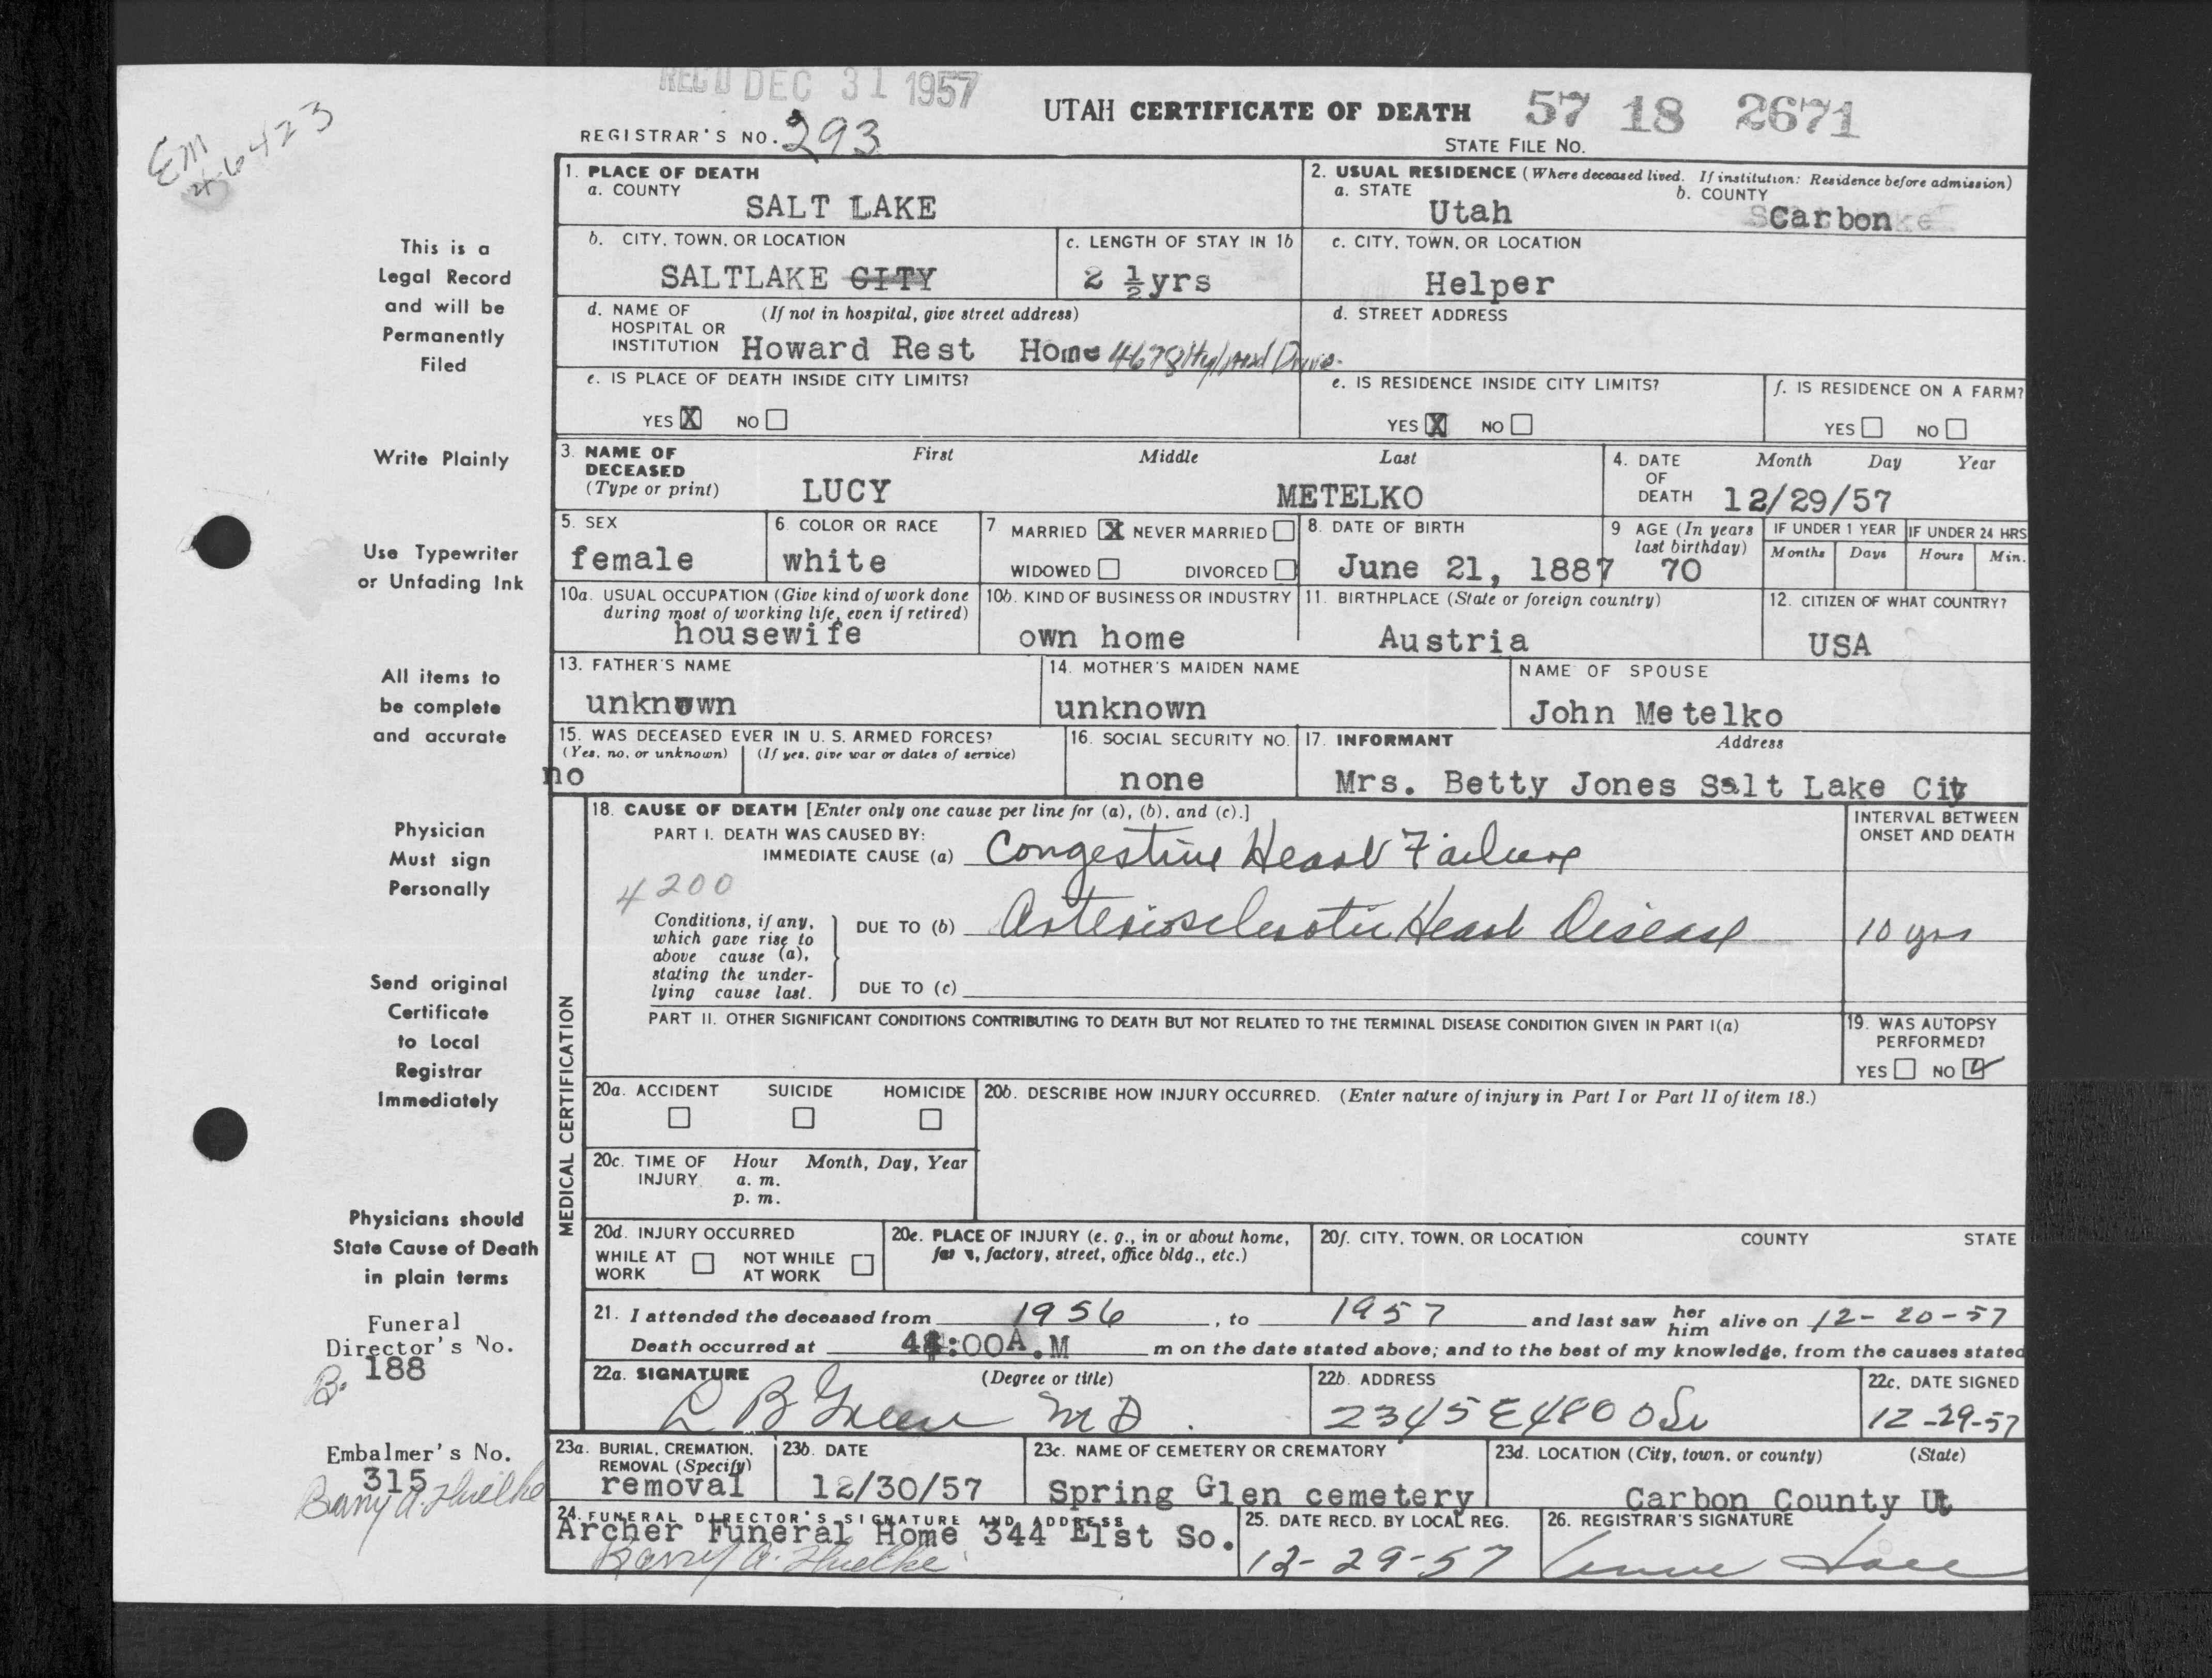 REC'D DEC 31 1957
EM
REGISTRAR'S NO. 293
UTAH CERTIFICATE OF DEATH 57 18 2671
STATE FILE NO.
1. PLACE OF DEATH
a. COUNTY
SALT LAKE
2. USUAL RESIDENCE (Where deceased lived. If institution: Residence before admission)
a. STATE
Utah
b. COUNTY
Carbon
b. CITY, TOWN, OR LOCATION
SALTLAKE CITY
c. LENGTH OF STAY IN 1b
2 ½yrs
c. CITY, TOWN, OR LOCATION
Helper
d. NAME OF HOSPITAL OR INSTITUTION
(If not in hospital, give street address)
Howard Rest Home 4678 Drive
d. STREET ADDRESS
e. IS PLACE OF DEATH INSIDE CITY LIMITS?
YES X NO
e. IS RESIDENCE INSIDE CITY LIMITS?
YES X NO
f. IS RESIDENCE ON A FARM?
YES NO
3. NAME OF DECEASED
(Type or print)
First Middle Last
LUCY METELKO
4. DATE OF DEATH
Month Day Year
12/29/57
5. SEX
female
6. COLOR OR RACE
white
7 MARRIED X NEVER MARRIED
WIDOWED DIVORCED
8. DATE OF BIRTH
June 21, 1887
9 AGE (In years last birthday)
70
IF UNDER 1 YEAR
Months Days
IF UNDER 24 HRS
Hours Min.
10a. USUAL OCCUPATION (Give kind of work done during most of working life, even if retired)
housewife
10b. KIND OF BUSINESS OR INDUSTRY
own home
11. BIRTHPLACE (State or foreign country)
Austria
12. CITIZEN OF WHAT COUNTRY?
USA
13. FATHER'S NAME
unknown
14. MOTHER'S MAIDEN NAME
unknown
NAME OF SPOUSE
John Metelko
15. WAS DECEASED EVER IN U. S. ARMED FORCES?
(Yes, no, or unknown) (If yes, give war or dates of service)
no
16. SOCIAL SECURITY NO.
none
17. INFORMANT Address
Mrs. Betty Jones Salt Lake City
MEDICAL CERTIFICATION
18. CAUSE OF DEATH [Enter only one cause per line for (a), (b), and (c).]
PART I. DEATH WAS CAUSED BY:
IMMEDIATE CAUSE (a) Congestive Heart Failure
INTERVAL BETWEEN ONSET AND DEATH
4200
Conditions, if any, which gave rise to above cause (a), stating the underlying cause last.
DUE TO (b) Arteriosclerotic Heart Disease
10 yrs
DUE TO (c)
PART II. OTHER SIGNIFICANT CONDITIONS CONTRIBUTING TO DEATH BUT NOT RELATED TO THE TERMINAL DISEASE CONDITION GIVEN IN PART I(a)
19. WAS AUTOPSY PERFORMED?
YES NO
20a. ACCIDENT SUICIDE HOMICIDE
20b. DESCRIBE HOW INJURY OCCURRED. (Enter nature of injury in Part I or Part II of item 18.)
20c. TIME OF INJURY
Hour Month, Day, Year
a. m.
p. m.
20d. INJURY OCCURRED
WHILE AT WORK NOT WHILE AT WORK
20e. PLACE OF INJURY (e. g., in or about home, farm, factory, street, office bldg., etc.)
20f. CITY, TOWN, OR LOCATION COUNTY STATE
21. I attended the deceased from 1956, to 1957 and last saw her him alive on 12-20-57
Death occurred at 4:00A.M m on the date stated above; and to the best of my knowledge, from the causes stated
22a. SIGNATURE (Degree or title)
L B Green MD.
22b. ADDRESS
2345 E 4800 So
22c. DATE SIGNED
12-29-57
23a. BURIAL, CREMATION, REMOVAL (Specify)
removal
23b. DATE
12/30/57
23c. NAME OF CEMETERY OR CREMATORY
Spring Glen cemetery
23d. LOCATION (City, town, or county) (State)
Carbon County Ut
24. FUNERAL DIRECTOR'S SIGNATURE AND ADDRESS
Archer Funeral Home 344 E1st So.
25. DATE RECD. BY LOCAL REG.
12-29-57
26. REGISTRAR'S SIGNATURE
This is a
Legal Record
and will be
Permanently
Filed
Write Plainly
Use Typewriter
or Unfading Ink
All items to
be complete
and accurate
Physician
Must sign
Personally
Send original
Certificate
to Local
Registrar
Immediately
Physicians should
State Cause of Death
in plain terms
Funeral
Director's No.
188
Embalmer's No.
315